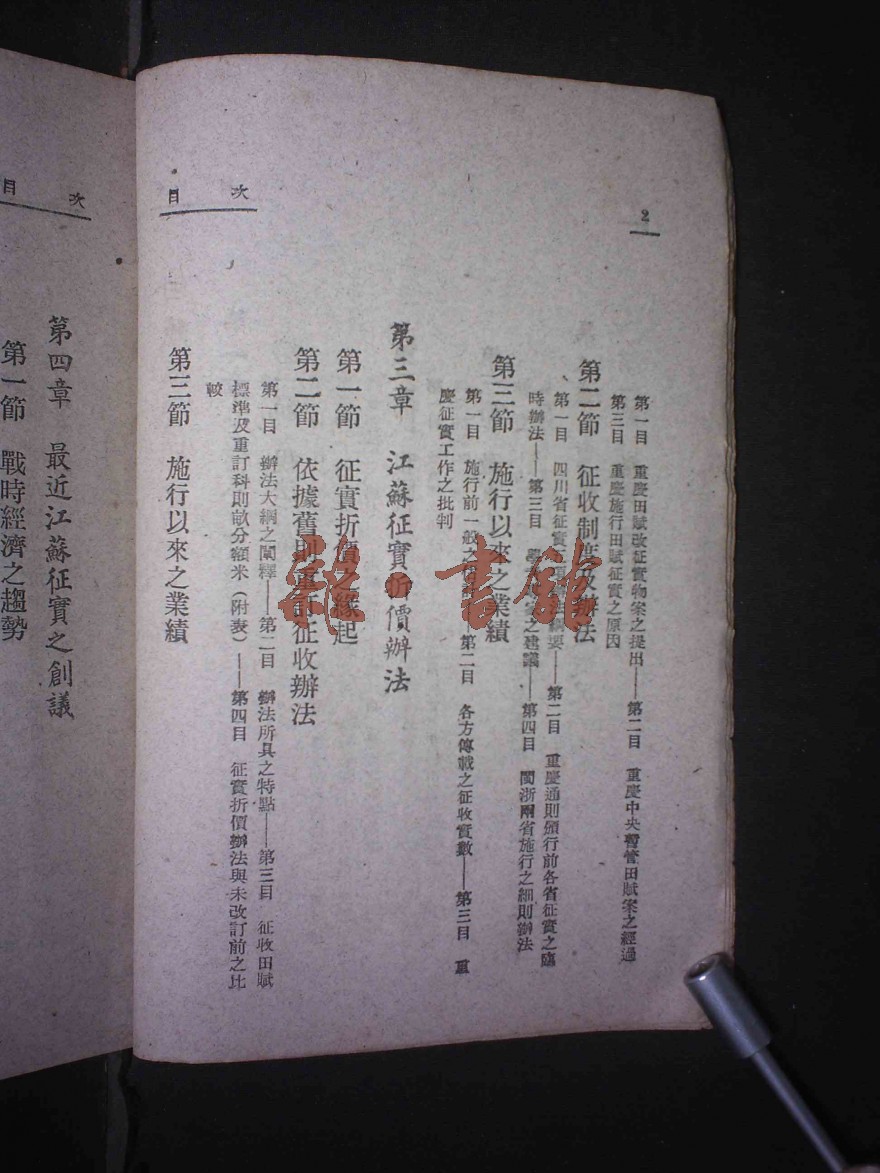 2
目次
第一目 重慶田賦改征實物案之提出——第二目 重慶中央暫管田賦案之經過
第三目 重慶施行田賦征實之原因
第二節 征收制度及辦法
第一目 四川省征實 要——第二目 重慶通則頒行前各省征實之臨
時辦法——第三目 之建議——第四目 閩浙兩省施行之細則辦法
第三節 施行以來之業績
第一目 施行前一般之 ——第二目 各方傳載之征收實數——第三目 重
慶征實工作之批判
第三章 江蘇征實折價辦法
第一節 征實折價之緣起
第二節 依據舊則重訂征收辦法
第一目 辦法大綱之闡釋——第二目 辦法所具之特點——第三目 征收田賦
標準及重訂科則畝分額米(附表)——第四目 征實折價辦法與未改訂前之比
較
第三節 施行以來之業績
目次
第四章 最近江蘇征實之創議
第一節 戰時經濟之趨勢
雜·書館